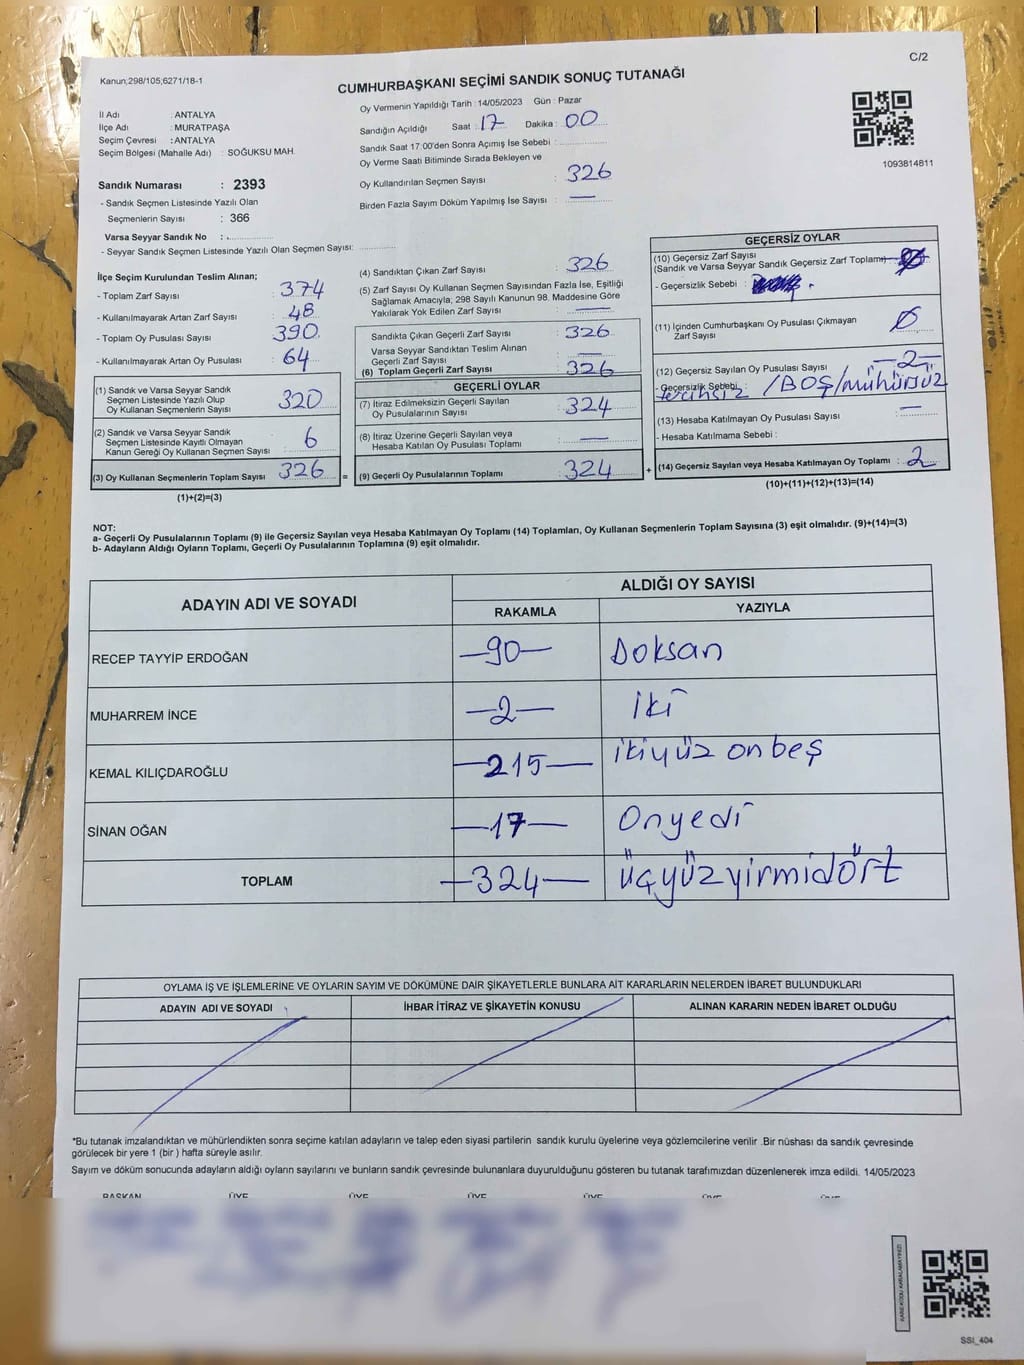 C/2
Kanun;298/105,6271/18-1
CUMHURBAŞKANI SEÇİMİ SANDIK SONUÇ TUTANAĞI
İl Adı : ANTALYA
İlçe Adı : MURATPAŞA
Seçim Çevresi : ANTALYA
Seçim Bölgesi (Mahalle Adı) : SOĞUKSU MAH.
Sandık Numarası : 2393
- Sandık Seçmen Listesinde Yazılı Olan
Seçmenlerin Sayısı : 366
Varsa Seyyar Sandık No :
- Seyyar Sandık Seçmen Listesinde Yazılı Olan Seçmen Sayısı:
Oy Vermenin Yapıldığı Tarih : 14/05/2023 Gün : Pazar
Sandığın Açıldığı Saat : 17 Dakika : 00
Sandık Saat 17:00'den Sonra Açımış İse Sebebi :
Oy Verme Saati Bitiminde Sırada Bekleyen ve
Oy Kullandırılan Seçmen Sayısı : 326
Birden Fazla Sayım Döküm Yapılmış İse Sayısı : —
1093814811
İlçe Seçim Kurulundan Teslim Alınan;
- Toplam Zarf Sayısı : 374
- Kullanılmayarak Artan Zarf Sayısı : 48
- Toplam Oy Pusulası Sayısı : 390
- Kullanılmayarak Artan Oy Pusulası : 64
(1) Sandık ve Varsa Seyyar Sandık
Seçmen Listesinde Yazılı Olup
Oy Kullanan Seçmenlerin Sayısı : 320
(2) Sandık ve Varsa Seyyar Sandık
Seçmen Listesinde Kayıtlı Olmayan
Kanun Gereği Oy Kullanan Seçmen Sayısı : 6
(3) Oy Kullanan Seçmenlerin Toplam Sayısı : 326 =
(1)+(2)=(3)
(4) Sandıktan Çıkan Zarf Sayısı : 326
(5) Zarf Sayısı Oy Kullanan Seçmen Sayısından Fazla İse, Eşitliği
Sağlamak Amacıyla; 298 Sayılı Kanunun 98. Maddesine Göre
Yakılarak Yok Edilen Zarf Sayısı : —
Sandıkta Çıkan Geçerli Zarf Sayısı : 326
Varsa Seyyar Sandıktan Teslim Alınan
Geçerli Zarf Sayısı : —
(6) Toplam Geçerli Zarf Sayısı : 326
GEÇERLİ OYLAR
(7) İtiraz Edilmeksizin Geçerli Sayılan
Oy Pusulalarının Sayısı : 324
(8) İtiraz Üzerine Geçerli Sayılan veya
Hesaba Katılan Oy Pusulası Toplamı : —
(9) Geçerli Oy Pusulalarının Toplamı : 324 +
GEÇERSİZ OYLAR
(10) Geçersiz Zarf Sayısı
(Sandık ve Varsa Seyyar Sandık Geçersiz Zarf Toplamı)
- Geçersizlik Sebebi :
(11) İçinden Cumhurbaşkanı Oy Pusulası Çıkmayan
Zarf Sayısı : 0
(12) Geçersiz Sayılan Oy Pusulası Sayısı : -2-
- Geçersizlik Sebebi : tercihsiz /BOŞ/mühürsüz
(13) Hesaba Katılmayan Oy Pusulası Sayısı : —
- Hesaba Katılmama Sebebi :
(14) Geçersiz Sayılan veya Hesaba Katılmayan Oy Toplamı : 2
(10)+(11)+(12)+(13)=(14)
NOT:
a- Geçerli Oy Pusulalarının Toplamı (9) ile Geçersiz Sayılan veya Hesaba Katılmayan Oy Toplamı (14) Toplamları, Oy Kullanan Seçmenlerin Toplam Sayısına (3) eşit olmalıdır. (9)+(14)=(3)
b- Adayların Aldığı Oyların Toplamı, Geçerli Oy Pusulalarının Toplamına (9) eşit olmalıdır.
ADAYIN ADI VE SOYADI
ALDIĞI OY SAYISI
RAKAMLA YAZIYLA
RECEP TAYYİP ERDOĞAN —90— Doksan
MUHARREM İNCE —2— iki
KEMAL KILIÇDAROĞLU —215— ikiyüz onbeş
SİNAN OĞAN —17— Onyedi
TOPLAM —324— üçyüzyirmidört
OYLAMA İŞ VE İŞLEMLERİNE VE OYLARIN SAYIM VE DÖKÜMÜNE DAİR ŞİKAYETLERLE BUNLARA AİT KARARLARIN NELERDEN İBARET BULUNDUKLARI
ADAYIN ADI VE SOYADI İHBAR İTİRAZ VE ŞİKAYETİN KONUSU ALINAN KARARIN NEDEN İBARET OLDUĞU
*Bu tutanak imzalandıktan ve mühürlendikten sonra seçime katılan adayların ve talep eden siyasi partilerin sandık kurulu üyelerine veya gözlemcilerine verilir .Bir nüshası da sandık çevresinde
görülecek bir yere 1 (bir ) hafta süreyle asılır.
Sayım ve döküm sonucunda adayların aldığı oyların sayılarını ve bunların sandık çevresinde bulunanlara duyurulduğunu gösteren bu tutanak tarafımızdan düzenlenerek imza edildi. 14/05/2023
BAŞKAN ÜYE ÜYE ÜYE ÜYE ÜYE ÜYE
KARE KODU KARALAMAYINIZ!
SSI_404